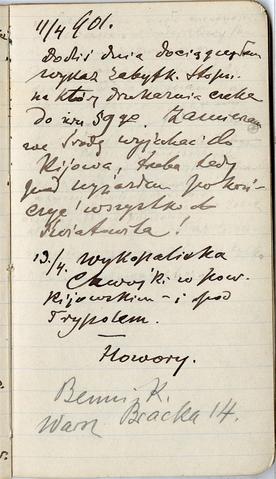 11/4 901.
Dziś dnia dociągnąłem
wykaz zabytk.
na który drukarnia czeka
do nru 59ge. Zamierzam
we środę wyjechać do
Kijowa, trzeba tedy
przed wyjazdem pokoń-
czyć wszystko do
Światowita!
13/4. Wykopaliska
Chwojki w pow.
Kijowskim – i pod
Trypolem.
Howory.
Benni K.
Warsz Bracka 14.